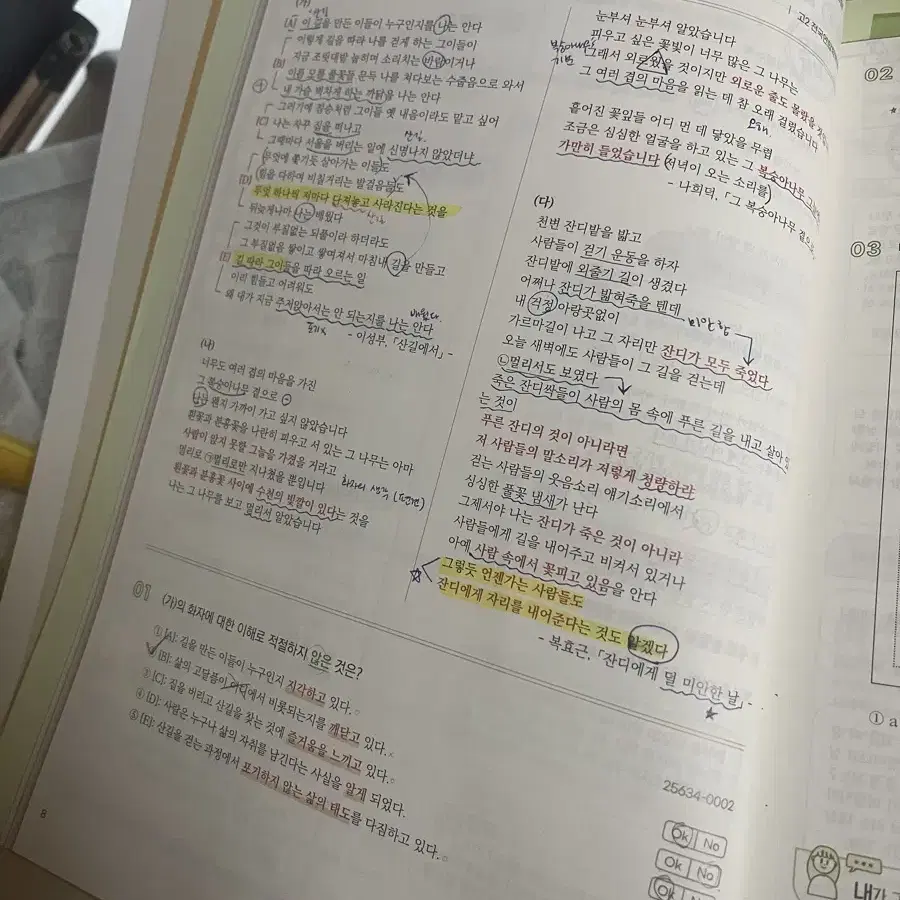 (가)
산길
[A] 이 길을 만든 이들이 누구인지를 나는 안다
이렇게 길을 따라 나를 걷게 하는 그이들이
지금 조릿대밭 눕히며 소리치는 바람이거나
[B] 이름 모를 풀꽃들 문득 나를 쳐다보는 수줍음으로 와서
내 가슴 벅차게 하는 까닭을 나는 안다
그러기에 짐승처럼 그이들 옛 내음이라도 맡고 싶어
[C] 나는 자꾸 집을 떠나고
산길
그때마다 서울을 버리는 일에 신명나지 않았더냐
무엇에 쫓기듯 살아가는 이들도
힘을 다하여 비칠거리는 발걸음들도
[D] 무엇 하나씩 저마다 다져놓고 사라진다는 것을
산길
뒤늦게나마 나는 배웠다
그것이 부질없는 되풀이라 하더라도
그 부질없음 쌓이고 쌓여져서 마침내 길을 만들고
[E] 길 따라 그이들을 따라 오르는 일
이리 힘들고 어려워도
왜 내가 지금 주저앉아서는 안 되는지를 나는 안다
배웠다.
포기x
- 이성부, 「산길에서」 -
(나)
너무도 여러 겹의 마음을 가진
그 복숭아나무 곁으로
나는 왠지 가까이 가고 싶지 않았습니다
흰꽃과 분홍꽃을 나란히 피우고 서 있는 그 나무는 아마
사람이 앉지 못할 그늘을 가졌을 거라고
멀리로 ㉠멀리로만 지나쳤을 뿐입니다
화자의 생각 (편견)
흰꽃과 분홍꽃 사이에 수천의 빛깔이 있다는 것을
나는 그 나무를 보고 멀리서 알았습니다
눈부셔 눈부셔 알았습니다
피우고 싶은 꽃빛이 너무 많은 그 나무는
그래서 외로웠을 것이지만 외로운 줄도 몰랐을 것
그 여러 겹의 마음을 읽는 데 참 오래 걸렸습니다
흩어진 꽃잎들 어디 먼 데 닿았을 무렵
조금은 심심한 얼굴을 하고 있는 그 복숭아나무 그늘
가만히 들었습니다 (저녁이 오는 소리를)
- 나희덕, 「그 복숭아나무 곁으
(다)
천변 잔디밭을 밟고
사람들이 걷기 운동을 하자
잔디밭에 외줄기 길이 생겼다
어쩌나 잔디가 밟혀죽을 텐데
내 걱정 아랑곳없이
미안함
가르마길이 나고 그 자리만 잔디가 모두 죽었다
오늘 새벽에도 사람들이 그 길을 걷는데
㉡멀리서도 보였다
죽은 잔디싹들이 사람의 몸 속에 푸른 길을 내고 살아
는 것이
푸른 잔디의 것이 아니라면
저 사람들의 말소리가 저렇게 청량하랴
걷는 사람들의 웃음소리 얘기소리에서
심심한 풀꽃 냄새가 난다
그제서야 나는 잔디가 죽은 것이 아니라
사람들에게 길을 내어주고 비켜서 있거나
아예 사람 속에서 꽃피고 있음을 안다
그렇듯 언젠가는 사람들도
잔디에게 자리를 내어준다는 것도 알겠다
- 복효근, 「잔디에게 덜 미안한 날」 -
01
(가)의 화자에 대한 이해로 적절하지 않은 것은?
① [A]: 길을 만든 이들이 누구인지 지각하고 있다.
② [B]: 삶의 고달픔이 어디에서 비롯되는지를 깨닫고 있다.
③ [C]: 집을 버리고 산길을 찾는 것에 즐거움을 느끼고 있다.
④ [D]: 사람은 누구나 삶의 자취를 남긴다는 사실을 알게 되었다.
⑤ [E]: 산길을 걷는 과정에서 포기하지 않는 삶의 태도를 다짐하고 있다.
25634-0002
Ok No
Ok No
Ok No
8
02
03
① a
내가